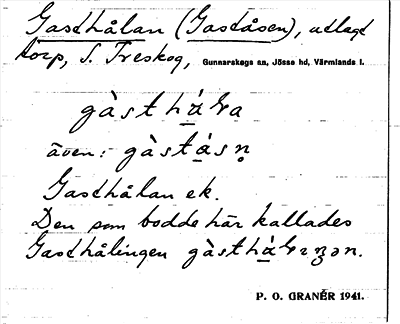 Gasthålan (Gaståsen), utlagt
torp, S. Treskog, Gunnarskogs sn, Jösse hd, Värmlands l.
gàsthála
även: gàstásn̥
Gasthålan ek.
Den som bodde här kallades
Gasthålingen
P. O. GRANÉR 1941.